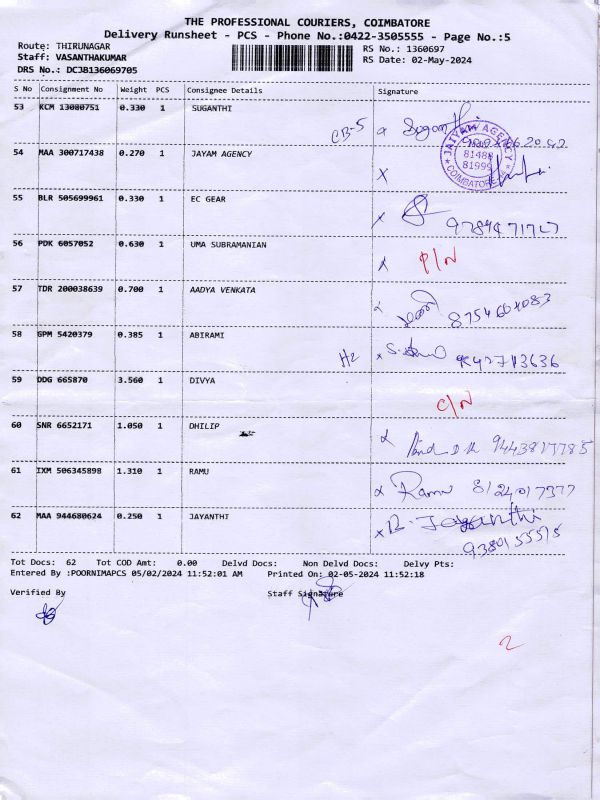 THE PROFESSIONAL COURIERS, COIMBATORE
Delivery Runsheet - PCS - Phone No.:0422-3505555 - Page No.:5
Route: THIRUNAGAR
RS No.: 1360697
Staff: VASANTHAKUMAR
RS Date: 02-May-2024
DRS No.: DCJB136069705
S No Consignment No Weight PCS Consignee Details Signature
53 KCM 13080751 0.330 1 SUGANTHI
CB-5
54 MAA 300717438 0.270 1 JAYAM AGENCY X
JAIYAM AGENCY
81488
81999
COIMBATORE
55 BLR 505699961 0.330 1 EC GEAR X
56 PDK 6057052 0.630 1 UMA SUBRAMANIAN X P/N
57 TDR 200038639 0.700 1 AADYA VENKATA 8754604083
58 GPM 5420379 0.385 1 ABIRAMI H2 x
59 DDG 665870 3.560 1 DIVYA C/N
60 SNR 6652171 1.050 1 DHILIP
61 IXM 506345898 1.310 1 RAMU Ramu 8124017377
62 MAA 944680624 0.250 1 JAYANTHI x R. Jayanthi
Tot Docs: 62 Tot COD Amt: 0.00 Delvd Docs: Non Delvd Docs: Delvy Pts:
Entered By :POORNIMAPCS 05/02/2024 11:52:01 AM Printed On: 02-05-2024 11:52:18
Verified By Staff Signature
2